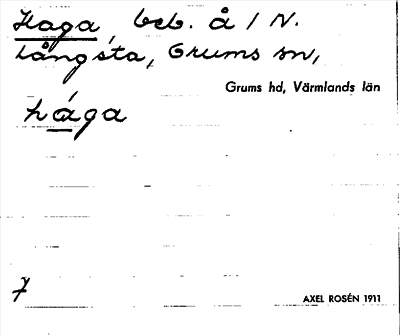 Haga, beb. å 1 N.
Långsta, Grums sn,
Grums hd, Värmlands län
hága
7
AXEL ROSÉN 1911